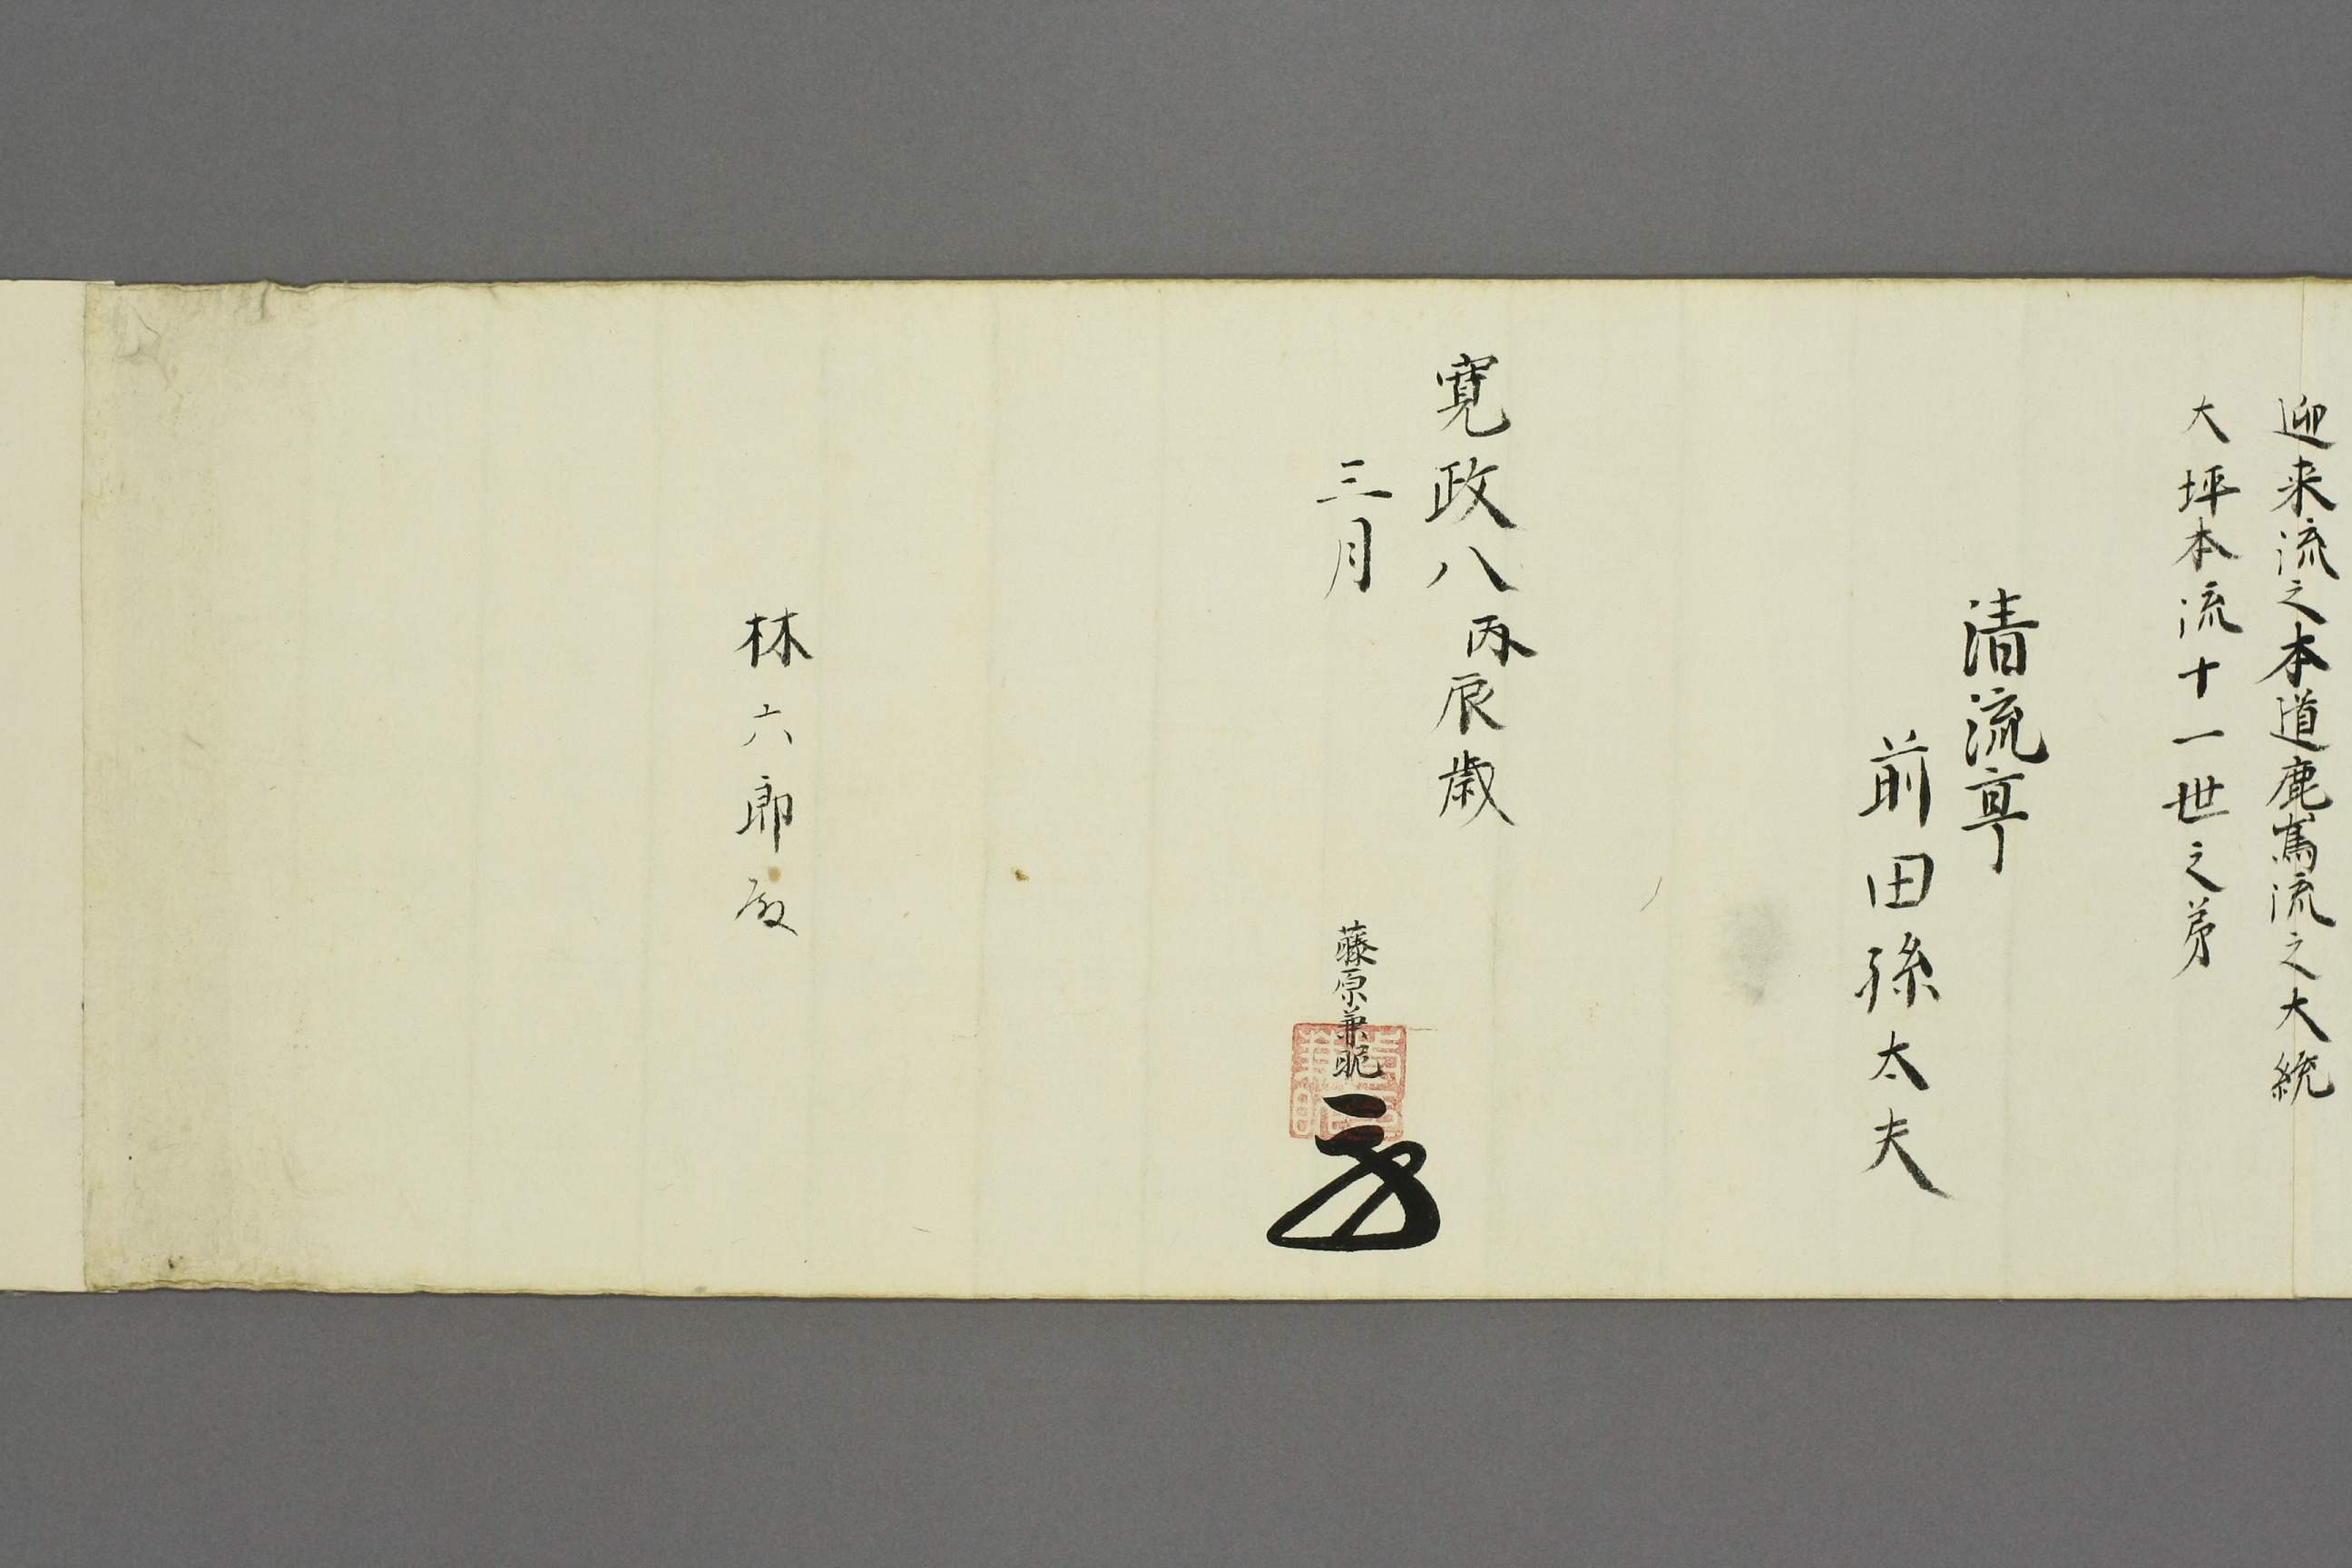 迎来流之本道鹿嶌流之大統
大坪本流十一世之弟
清流亭
前田孫太夫
寛政八丙辰歳
三月
藤原兼昵
林六郎殿